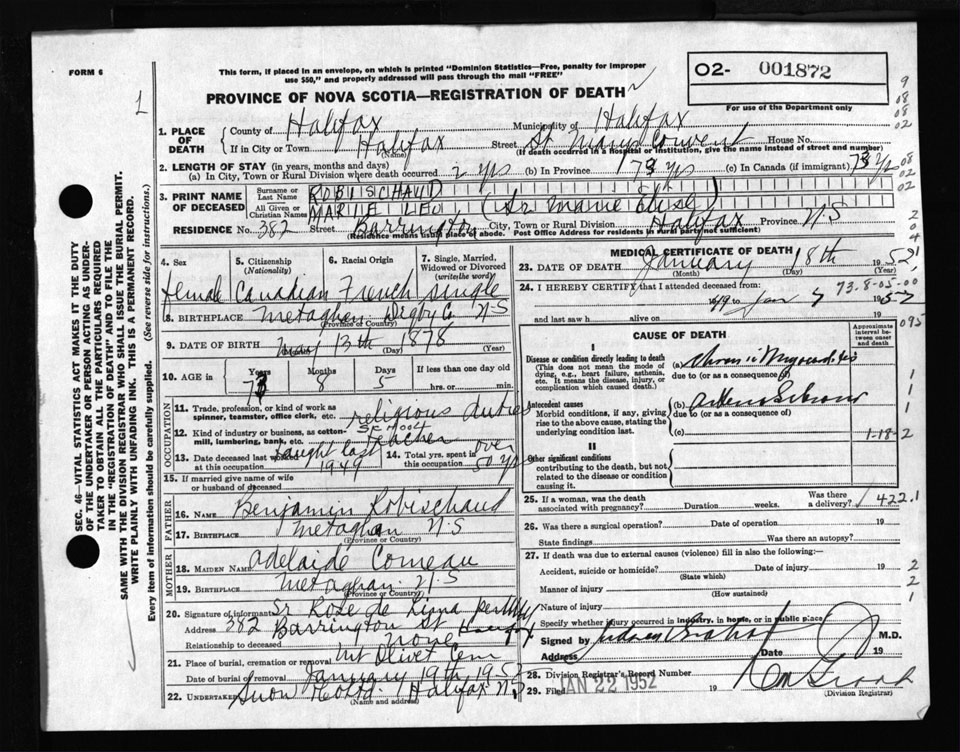 FORM 6
This form, if placed in an envelope, on which is printed "Dominion Statistics—Free, penalty for improper
use $50," and properly addressed will pass through the mail "FREE"
PROVINCE OF NOVA SCOTIA—REGISTRATION OF DEATH
02- 001872
For use of the Department only
1. PLACE OF DEATH
County of Halifax Municipality of Halifax
If in City or Town Halifax (Name) Street St Marys Convent House No.
(If death occurred in a hospital or institution, give the name instead of street and number)
2. LENGTH OF STAY (in years, months and days)
(a) In City, Town or Rural Division where death occurred 2 yrs (b) In Province 73 yrs (c) In Canada (if immigrant) 73 yrs
3. PRINT NAME OF DECEASED
Surname or Last Name ROBISCHAUD
All Given or Christian Names MARIE (Sr Marie Elise)
RESIDENCE No. 382 Street Barrington City, Town or Rural Division Halifax Province N.S
(Residence means usual place of abode. Post Office Address for residents in rural parts not sufficient)
4. Sex female
5. Citizenship (Nationality) Canadian
6. Racial Origin French
7. Single, Married, Widowed or Divorced (write the word) single
8. BIRTHPLACE Metaghan Digby Co N-S
(Province or Country)
9. DATE OF BIRTH May (Month) 13th (Day) 1878 (Year)
10. AGE in Years 73 Months 8 Days 5 If less than one day
hrs. or min.
OCCUPATION
11. Trade, profession, or kind of work as spinner, teamster, office clerk, etc. religious duties
12. Kind of industry or business, as cotton-mill, lumbering, bank, etc. School teacher
13. Date deceased last worked at this occupation taught last 1949
14. Total yrs. spent in this occupation over 50 yrs
15. If married give name of wife or husband of deceased
FATHER
16. NAME Benjamin Robischaud
17. BIRTHPLACE Metaghan N-S
(Province or Country)
MOTHER
18. MAIDEN NAME Adelaide Comeau
19. BIRTHPLACE Metaghan N-S
(Province or Country)
20. Signature of informant Sr Rose de Lima
Address 382 Barrington St Halifax
Relationship to deceased none
21. Place of burial, cremation or removal Mt Olivet Cem
Date of burial or removal January 19th 1952
22. Undertaker Snow Halifax N-S
(Name and address)
MEDICAL CERTIFICATE OF DEATH
23. DATE OF DEATH January (Month) 18th (Day) 1952 (Year)
24. I HEREBY CERTIFY that I attended deceased from:
1949 Jan 7 1952
and last saw h alive on
73.8-05-00
CAUSE OF DEATH
Approximate interval between onset and death
I
Disease or condition directly leading to death
(This does not mean the mode of dying, e.g., heart failure, asthenia, etc. It means the disease, injury, or complication which caused death.)
(a) Chronic Myocarditis
due to (or as a consequence of)
Antecedent causes
Morbid conditions, if any, giving rise to the above cause, stating the underlying condition last.
(b)
due to (or as a consequence of)
(c)
1-18-2
II
Other significant conditions
contributing to the death, but not related to the disease or condition causing it.
25. If a woman, was the death associated with pregnancy? Duration weeks. Was there a delivery?
422.1
26. Was there a surgical operation? Date of operation 19
State findings Was there an autopsy?
27. If death was due to external causes (violence) fill in also the following:—
Accident, suicide or homicide? Date of injury 19
(State which)
Manner of injury
(How sustained)
Nature of injury
Specify whether injury occurred in industry, in home, or in public place
Signed by M.D.
Address Date 19
28. Division Registrar's Record Number
29. Filed JAN 22 1952 19
(Division Registrar)
SEC. 46—VITAL STATISTICS ACT MAKES IT THE DUTY
OF THE UNDERTAKER OR PERSON ACTING AS UNDER-
TAKER TO OBTAIN ALL THE PARTICULARS REQUIRED
IN THE "REGISTRATION OF DEATH" AND TO FILE THE
SAME WITH THE DIVISION REGISTRAR WHO SHALL ISSUE THE BURIAL PERMIT.
WRITE PLAINLY WITH UNFADING INK. THIS IS A PERMANENT RECORD.
Every item of information should be carefully supplied. (See reverse side for instructions.)